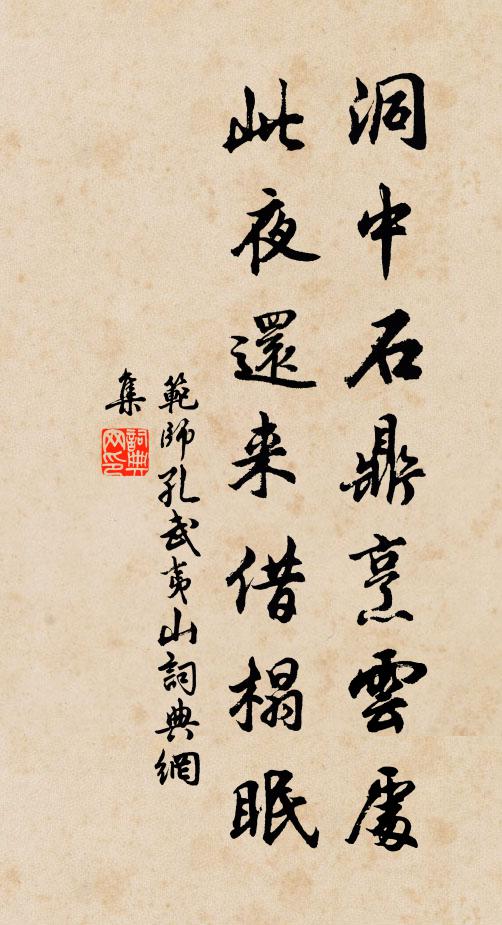 洞中石鼎烹雲處
此夜還来借榻眠
範師孔武夷山詞典網
集
詞典网印